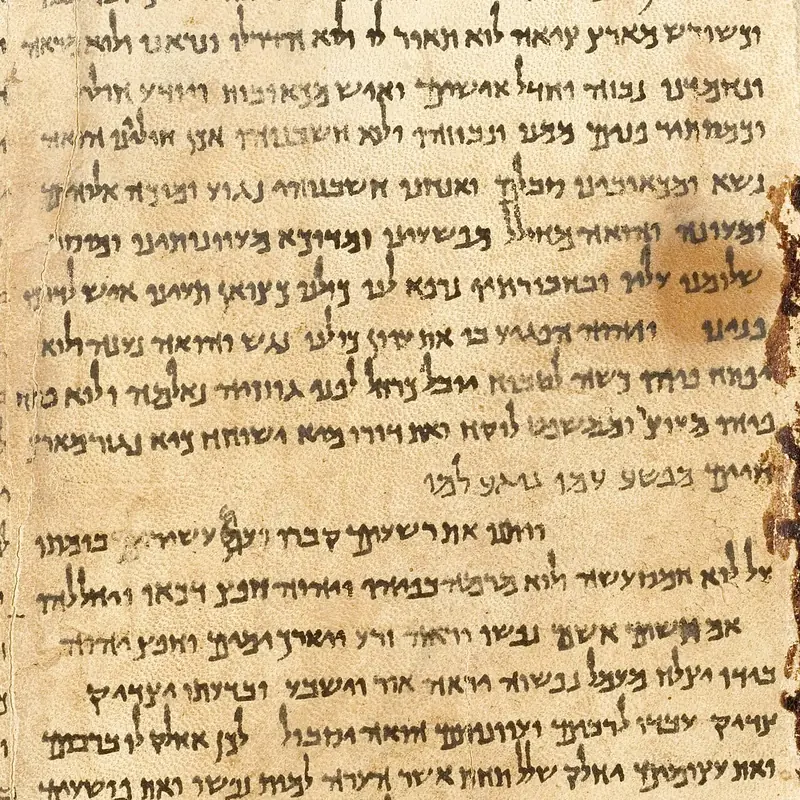 וכשורש מארץ ציאה לוא תואר לו ולא הדר לו ונראנו ולוא מראה
ונחמדנו נבזה וחדל אישים ואיש מכאובות ויודע חולי
וכמסתיר פנים ממנו ונבוזהו ולוא חשבנוהו אכן חוליינו הואה
נשא ומכאובינו סבלם ואנחנו חשבנוהו נגוע ומוכה אלוהים
ומעונה והואה מחולל מפשעינו ומדוכא מעוונותינו ומוסר
שלומנו עליו ובחבורתיו נרפא לנו כולנו כצואן תעינו איש לדרכו
פנינו ויהוה הפגיע בו את עוון כולנו נגש והואה נענה ולוא
יפתח פיהו כשה לטבוח יובל כרחל לפני גוזזיה נאלמה ולוא פתח
פיהו מעוצר וממשפט לוקח ואת דורו מיא ישוחח כיא נגזר מארץ
חיים מפשע עמו נוגע למו
ויתנו את רשעים קברו ועם עשיר בומתו
על לוא חמס עשה ולוא מרמה בפיהו ויהוה חפץ דכאו ויחללהו
אם תשים אשם נפשו יראה זרע ויאריך ימים וחפץ יהוה
בידו יצלח מעמל נפשוה יראה אור וישבע ובדעתו יצדיק
צדיק עבדו לרבים ועוונותם הואה יסבול לכן אחלק לו ברבים
ואת עצומים יחלק שלל תחת אשר הערה למות נפשו ואת פושעים